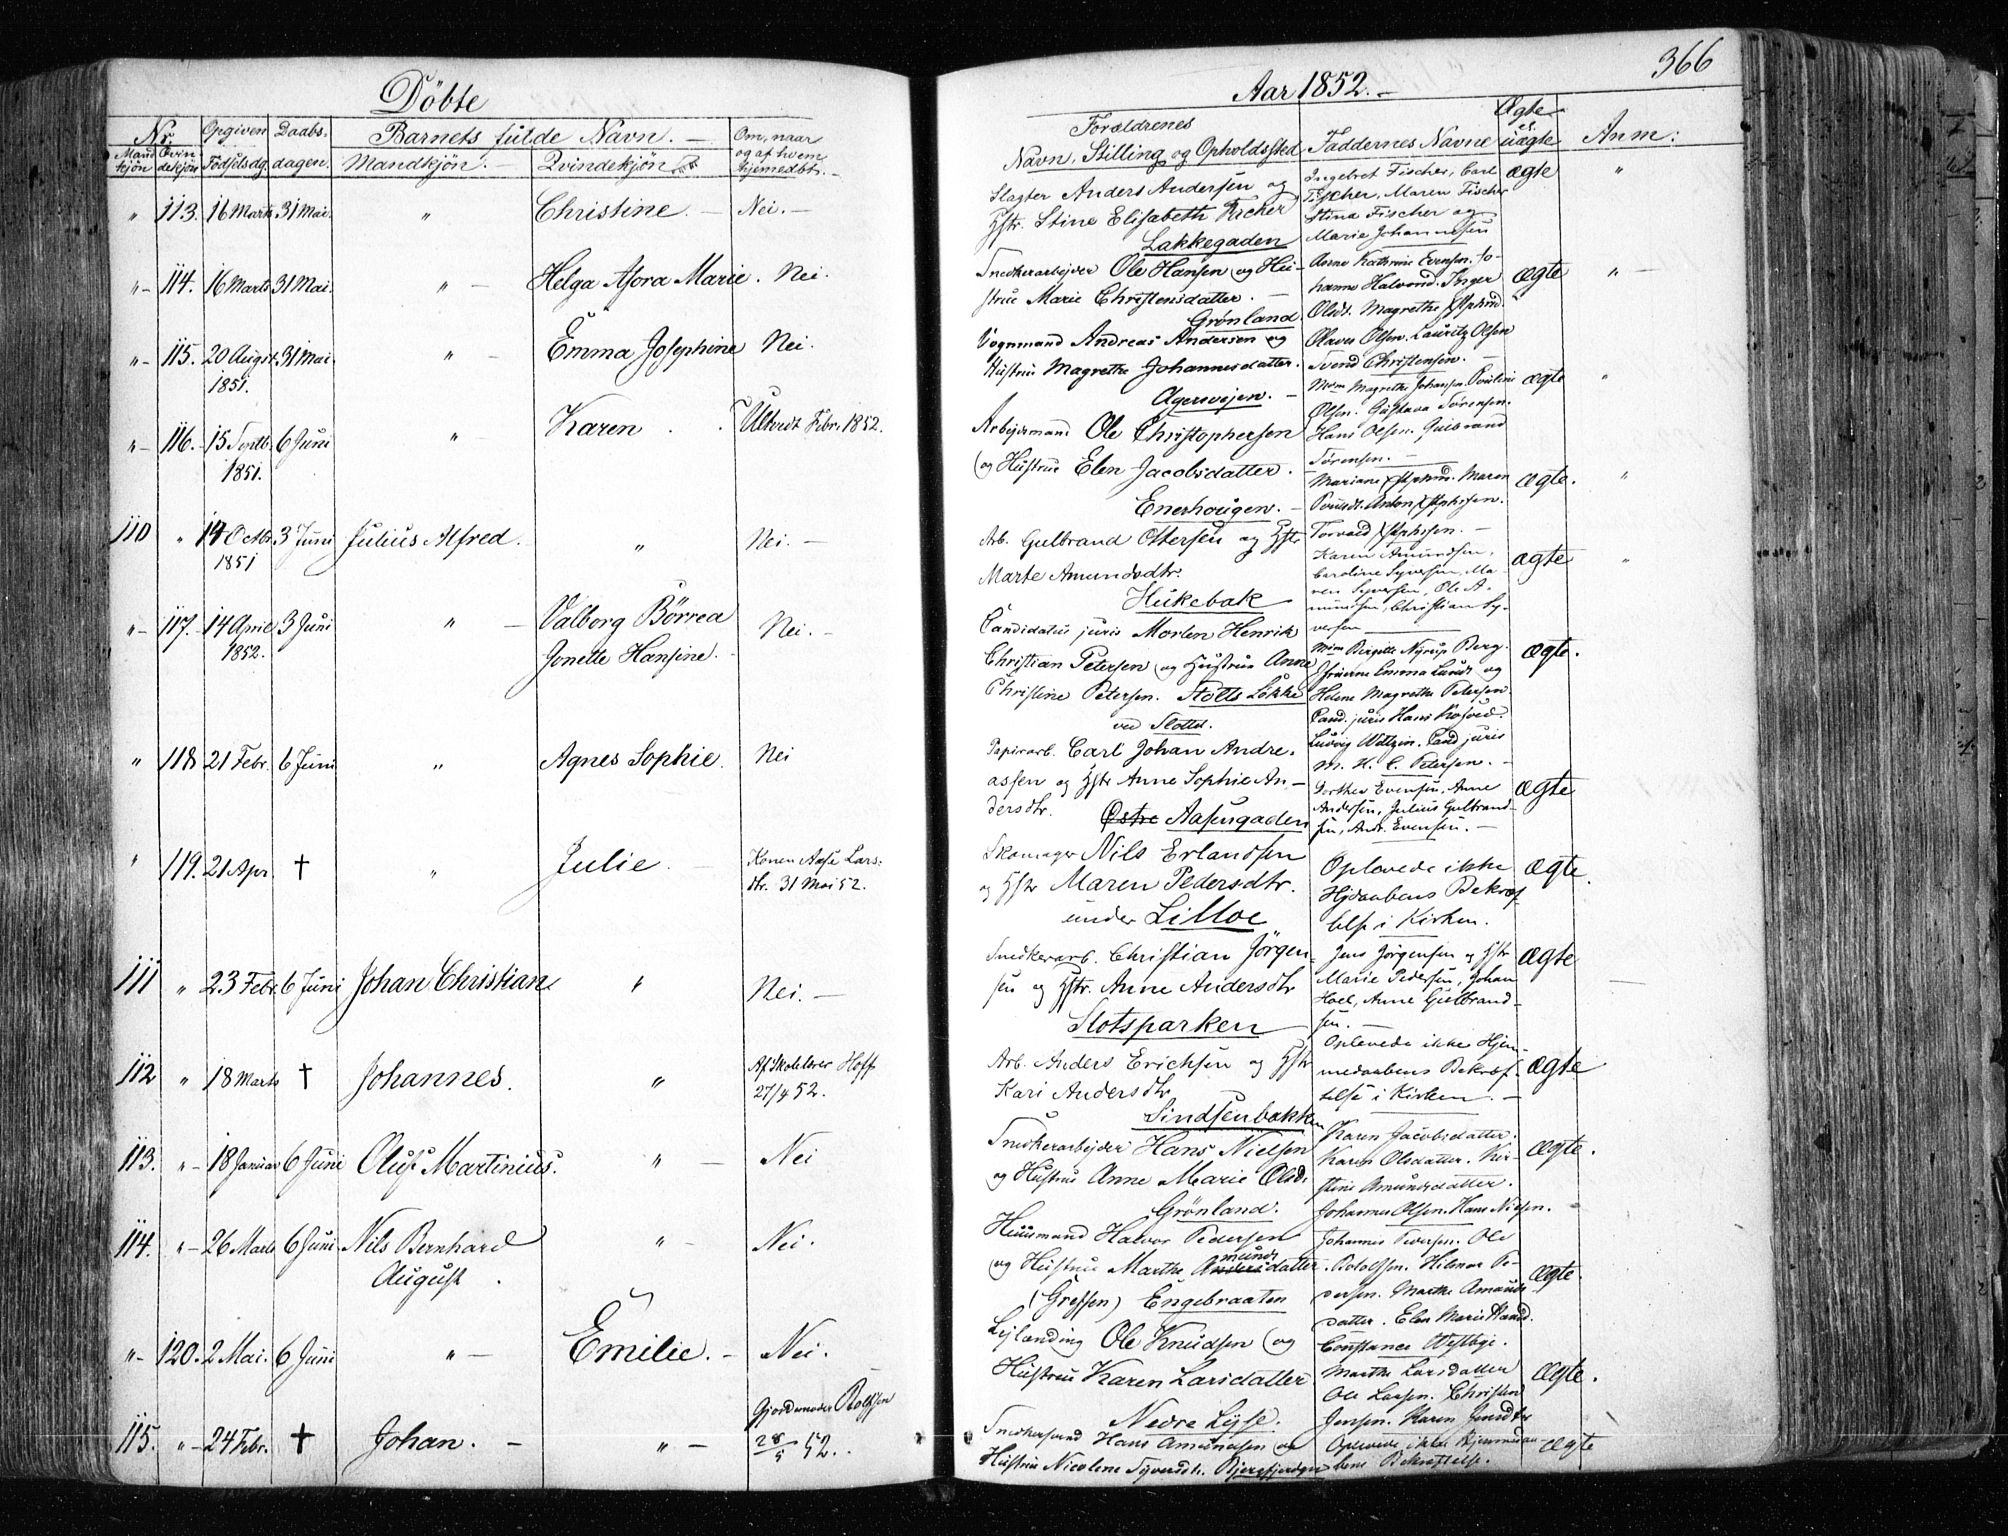 Döbte
Nr. Opgiven Daabs- Barnets fulde Navn. — Om, naar
Mand Qvin Födselsdg. dagen. Mandkjön. Qvindekjön og af hvem
kjön dekjön hjemedöbt. —
" 113. 16 Marts 31 Mai. " Christine. — Nei. —
"- 114. 16 Marts 31 Mai. " — Helga Asora Marie. Nei.
"- 115. 20 Augst. 31 Mai. " — Emma Josephine Nei.
1851.
"- 116. 15 Septb. 6 Juni " Karen Febr. 1852.
1851.
110 " 14 Octbr. 3 Juni Julius Alfred. " Nei. —
1851
"- 117. 14 April 3 Juni " — Valborg Börrea Nei. —
1852. Jonette Hansine.
" 118 21 Febr. 6 Juni " Agnes Sophie. Nei
" 119. 21 Apr. † " Julie. — Konen Aase Lars-
dtr. 31 Mai 52.
111 " 23 Febr. 6 Juni Johan Christian " Nei. —
112 " 18 Marts † Johannes. " Af Skolelærer Hoff
27/4 52.
113. "- 18 Januar 6 Juni Oluf Martinius. " — Nei
114. "- 26 Marts 6 Juni Nils Bernhard " — Nei.
August.
"- 120. 2 Mai. 6 Juni " — Emilie. — Nei.
115. "- 24 Febr. † Johan. — " — Gjordemoder
28/5 52.
366
Aar 1852. —
Forældrenes Ægte
Navn, Stilling og Opholdssted Faddernes Navne el. uægte Anm:
Slagter Anders Andersen og Ingebret Fischer, Carl ægte "
Fischer, Maren Fischer
Hstr. Stine Elisabeth Ficher Stina Fischer og
Lakkegaden Marie Johannesen
Snedkerarbejder Ole Hansen og Hu- Anne Kathrine Evensen. Jo- ægte " —
strue Marie Christensdatter. — hanne Halvord. Inger
Grönland Olsdt. Magrethe
Vognmand Andreas Andersen og Olaves Olsen. Lauritz Olsen
Hustrue Magrethe Johannesdatter. Svend Christensen. —
Agersvejen. — Mdm Magrethe Johansen. Pouline ægte "
Arbejdsmand Ole Christophersen Olsen. Gustava Sörensen.
Hans Olsen. Gulbrand
og Hustrue Elen Jacobsdatter. Sörensen. —
Enerhougen. — Mariane Maren ægte. "
Anton
Arb. Gulbrand Ottersen og Hstr Torvald
Marte Amundsdtr. Karen Amundsen, ægte "
Hukebak Caroline Syversen, Ma-
ren Syversen, Ole A-
mundsen, Christian Sy-
Candidatus juris Morten Henrik versen
Christian Petersen og Hustrue Anne Mdm Birgitte Nyrup Berg. ægte.
Christine Petersen. Stolts Løkke Emma Lund og
ved Slottet. Helene Magrethe Petersen.
Cand. juris Hans
Papirarb. Carl Johan Andre- Ludvig Cand juris
assen og Hstr Anne Sophie An- M. H. C. Petersen. —
dersdtr. Dorthea Evensen, Anne ægte
Østre Aasengaden Andersen, Julius Gulbrand-
sen, Andr. Evensen. —
Skomager Nils Erlandsen Oplevede ikke ægte.
og Hstr Maren Pedersdtr. Hjdaabens Bekræf-
under Lilloe telse i Kirken.
Snedkerarb. Christian Jörgen- Jens Jörgensen og Hstr ægte
sen og Hstr. Anne Andersdtr Marie Pedersen, Johan
Slotsparken Hoel, Anne Gulbrand-
sen. —
Arb. Anders Erichsen og Hstr Oplevede ikke Hjem-
Kari Andersdtr medaabens Bekræf- ægte
Sindsenbakken telse i Kirken. —
Snedkerarbejder Hans Nielsen Karen Jacobsdatter. ægte.
og Hustrue Anne Marie Olsd. Karen Olsdatter. Kir-
Grönland. stine Amundsdatter.
Johannes Olsen. Hans Nielsen.
Huusmand Halvor Pedersen Johannes Pedersen. Ole
og Hustrue Marthe Amundsdatter. Hilmar Pe- ægte.
(Grefsen) Engebraaten dersen. Marthe Amunds-
datter. Elen Marie
Lejlænding Ole Knudsen og Constance
Hustrue Karen Larsdatter Marthe Larsdatter ægte.
Nedre Lysse. Ole Larsen. Christen
Jensen. Karen Jensdtr
Snedkersvend Hans Amundsen og Oplevede ikke Hjemmedaa- ægte
Hustrue Nicoline Syversdt. bens Bekræftelse.